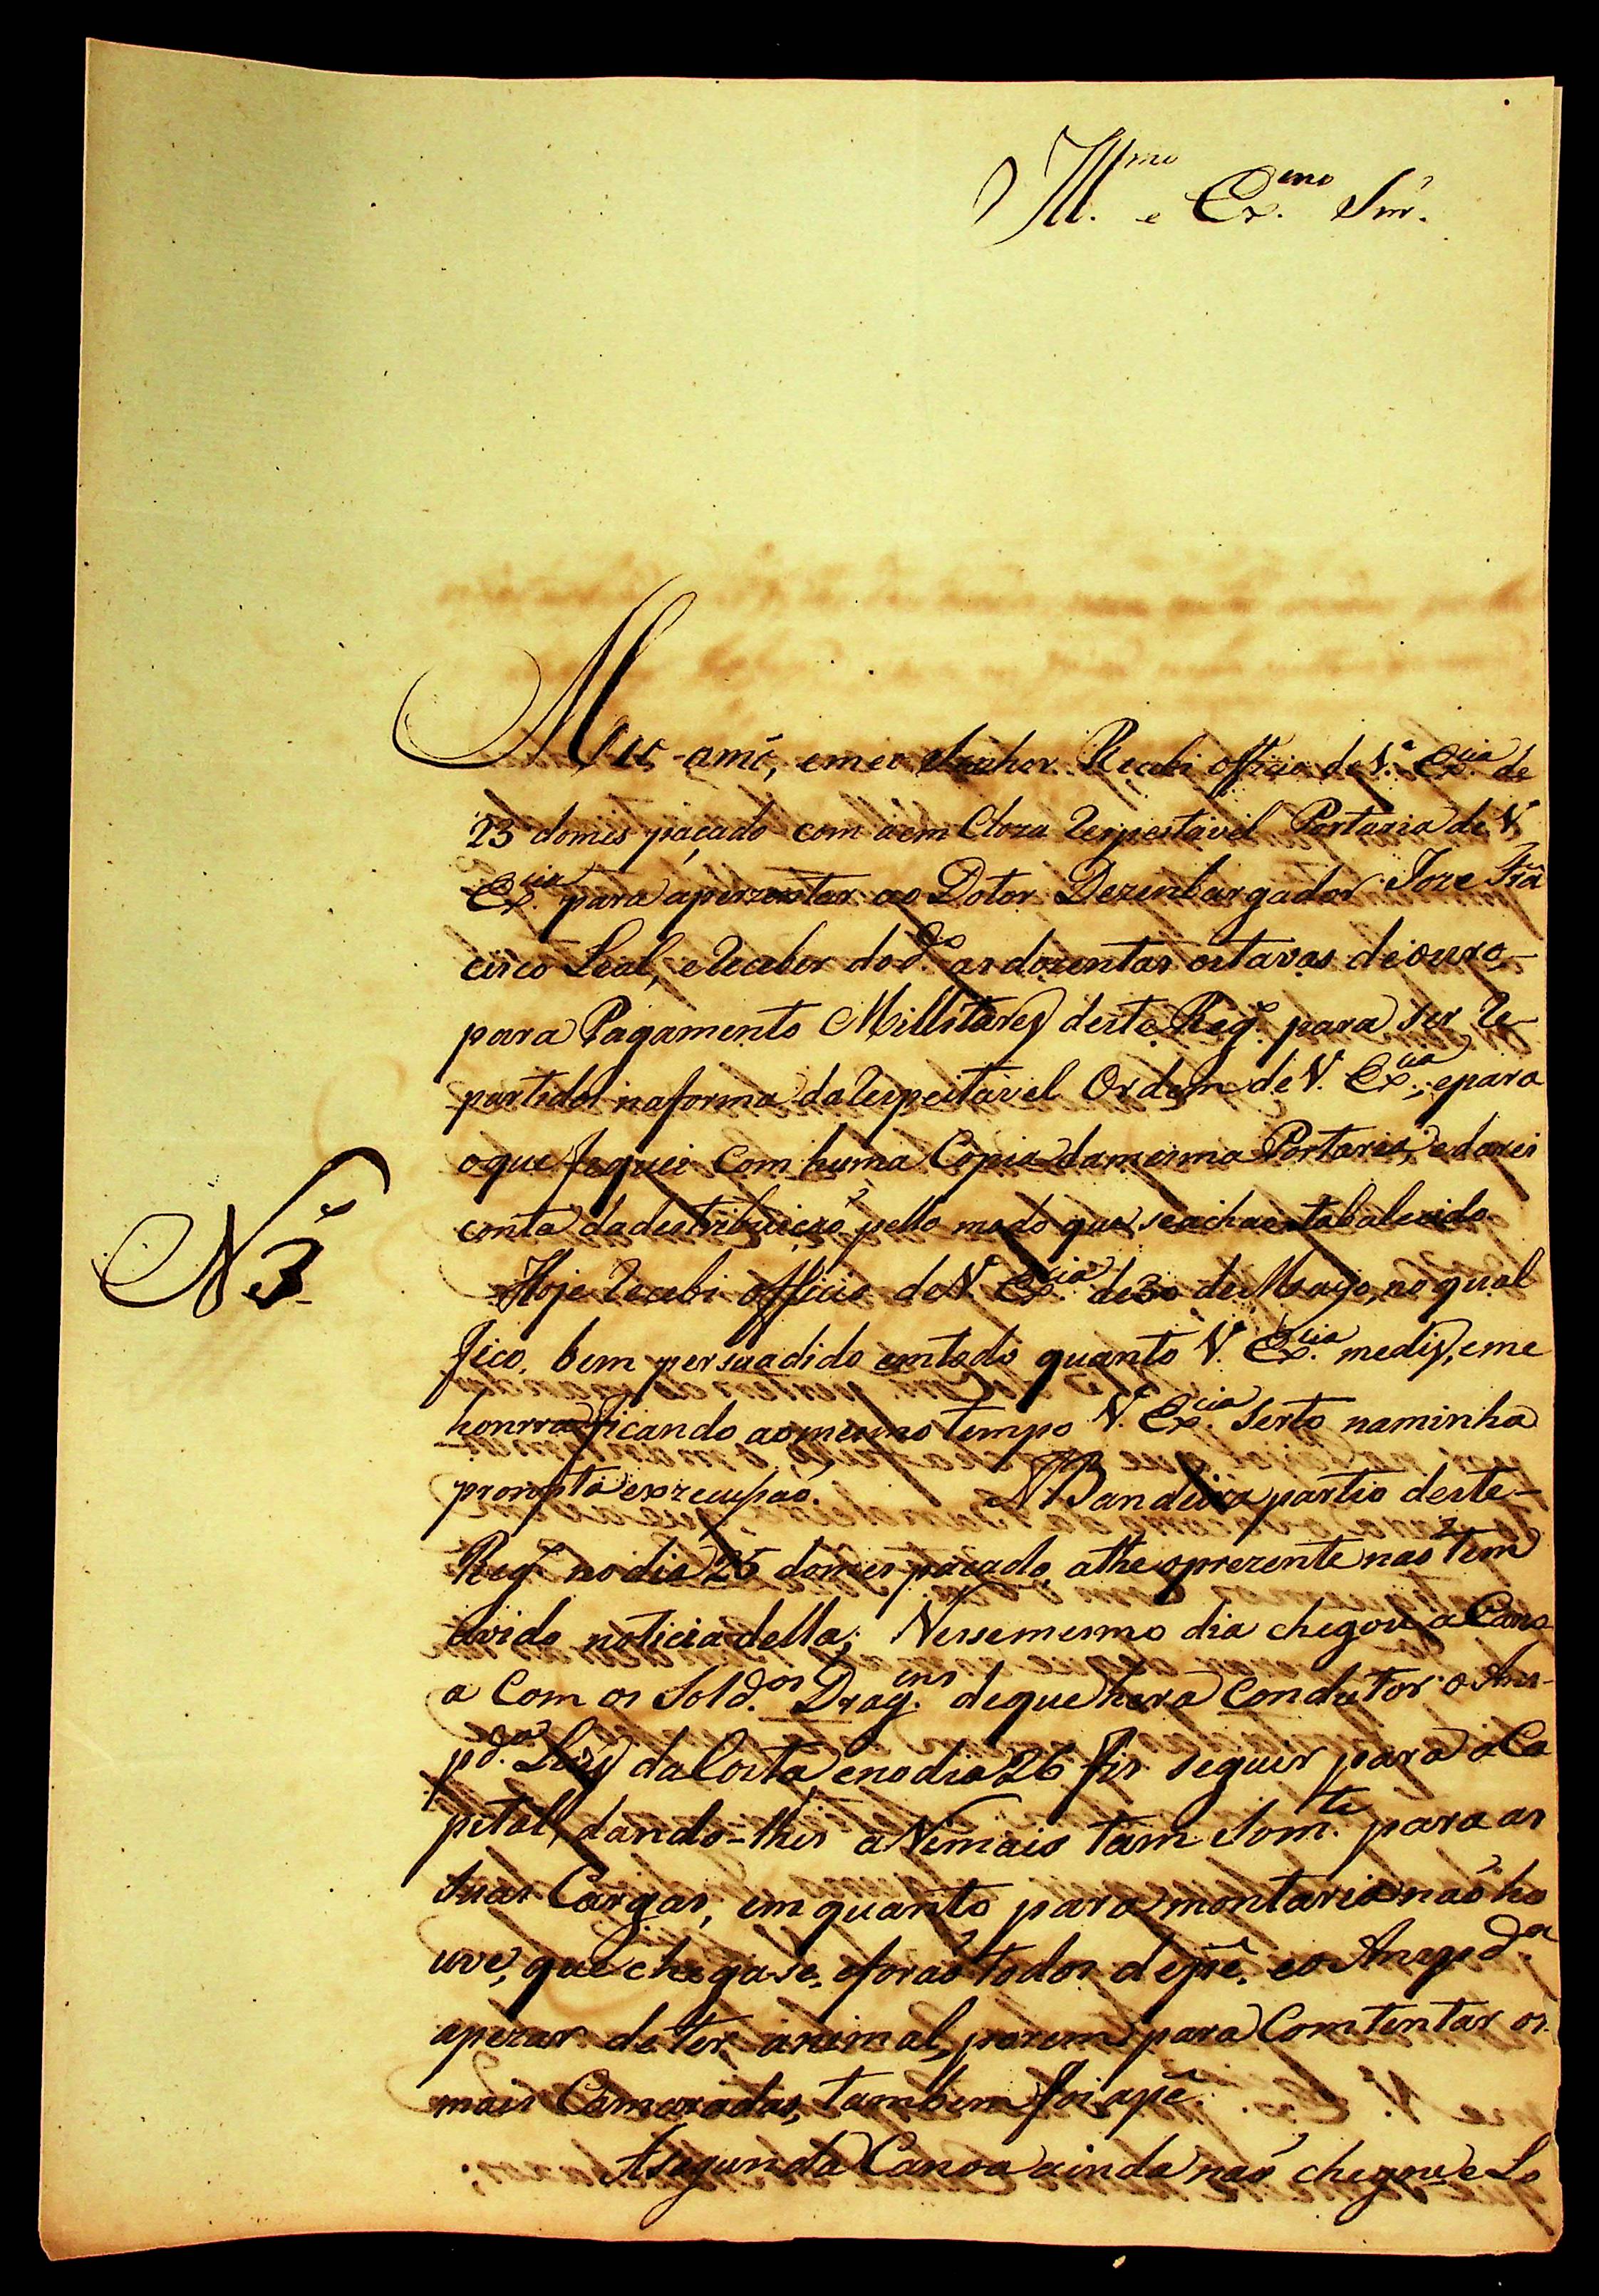 Ill.mo e Ex.mo Snr.
Meu amo, e meu Senhor. Recebi officio de V.ª Ex.cia de
23 domes paçado com a em Cloza Respeitavel Portaria de V.
Ex.cia para aprezentar ao Dotor Dezenbargador Joze Frã
cisco Leal, e Receber do d.º as dozentas oitavas de ouro
para Pagamento Millitares deste Reg.º para ser Re
partidos na forma da Respeitavel Ordem de V. Ex.cia, epara
oque fiquei Com huma Copia damesma Portaria, edarei
conta dadestribuição pello modo que seacha estabalecido
Hoje Recebi officio de V. Ex.cia de 30 de Mayo, no qual
fico, bem persuadido emtodo quanto V. Ex.cia mediz, eme
honrra ficando aomesmo tempo V. Ex.cia Serto naminha
prompta exzecusão. A Bandeira partio deste
Reg.º no dia 25 domes paçado, athe oprezente não tem
avido noticia della; Nessemesmo dia chegou a Cano
a Com os Sold.os Drag.ens deque hera Condutor o Ans
pd.a Luis da Costa, enodia 26 fis seguir para a Ca
pital, dando-lhes aNimais tam Som.te para as
suas Cargas, em quanto para montaria não ho
uve, que chega-se, eforão todos depé, eo Anspd.a
apezar deter animal, porem para Comtentar os
mais Camaradas, tambem foi apé.
Asegunda Canoa ainda não chegou e Lo
N.º 3